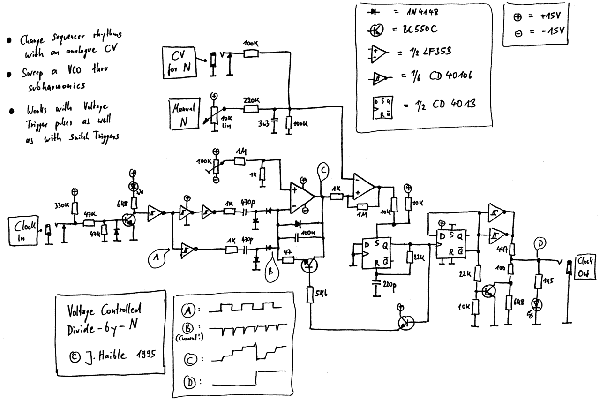 • Change sequencer rhythms
with an analogue CV
• Sweep a VCO thru
subharmonics
• Works with Voltage
Trigger pulses as well
as with Switch Triggers
CV
for N
100K
Manual
N
10K
lin
220K
3n3
100K
= 1N4148
= BC550C
= 1/2 LF353
= 1/6 CD40106
D S Q
R Q
= 1/2 CD4013
⊕ = +15V
⊖ = -15V
100K
1M
1K
C
1K
1M
10K
330K
Clock
in
47K
1K
470p
A
1K
470p
B
100K
47
5k6
D S Q
R Q
22K
220p
D S Q
R Q
22K
10K
4k7
100
6k8
D
1k5
Clock
Out
Voltage Controlled
Divide-by-N
© J. Haible 1995
A :
B :
C :
D :